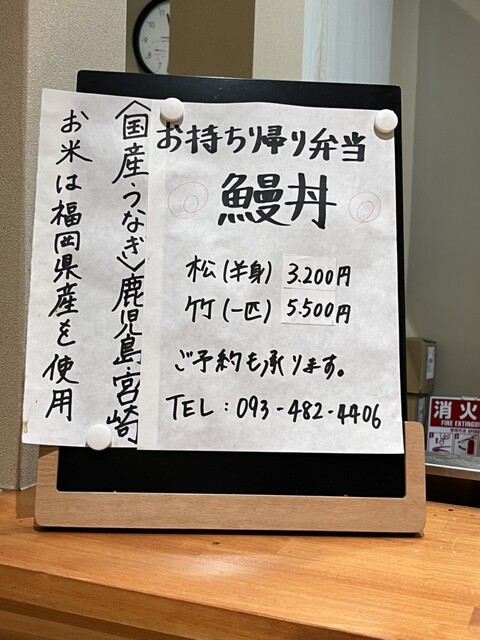 お持ち帰り弁当
鰻丼
松(半身) 3.200円
竹(一匹) 5.500円
ご予約も承ります。
TEL:093-482-4406
〈国産うなぎ〉鹿児島・宮崎
お米は福岡県産を使用
消火
FIRE EXTINGUI